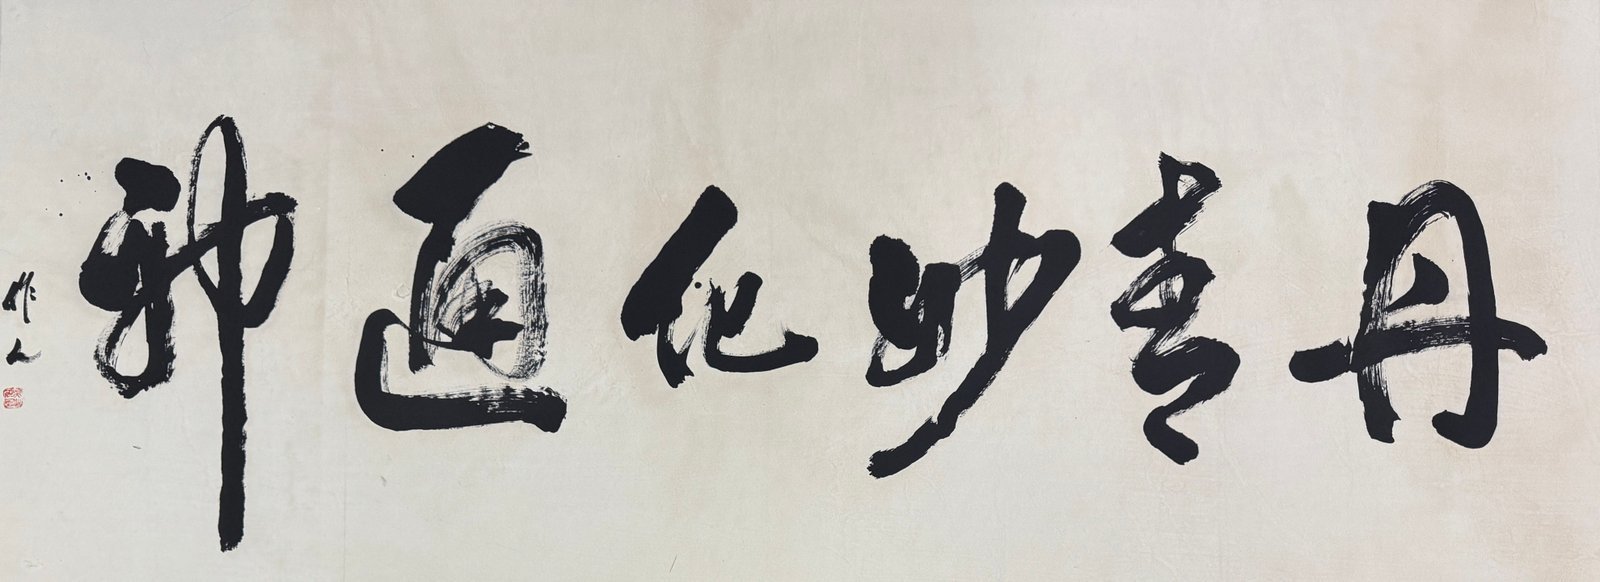 丹青妙化通神
作人